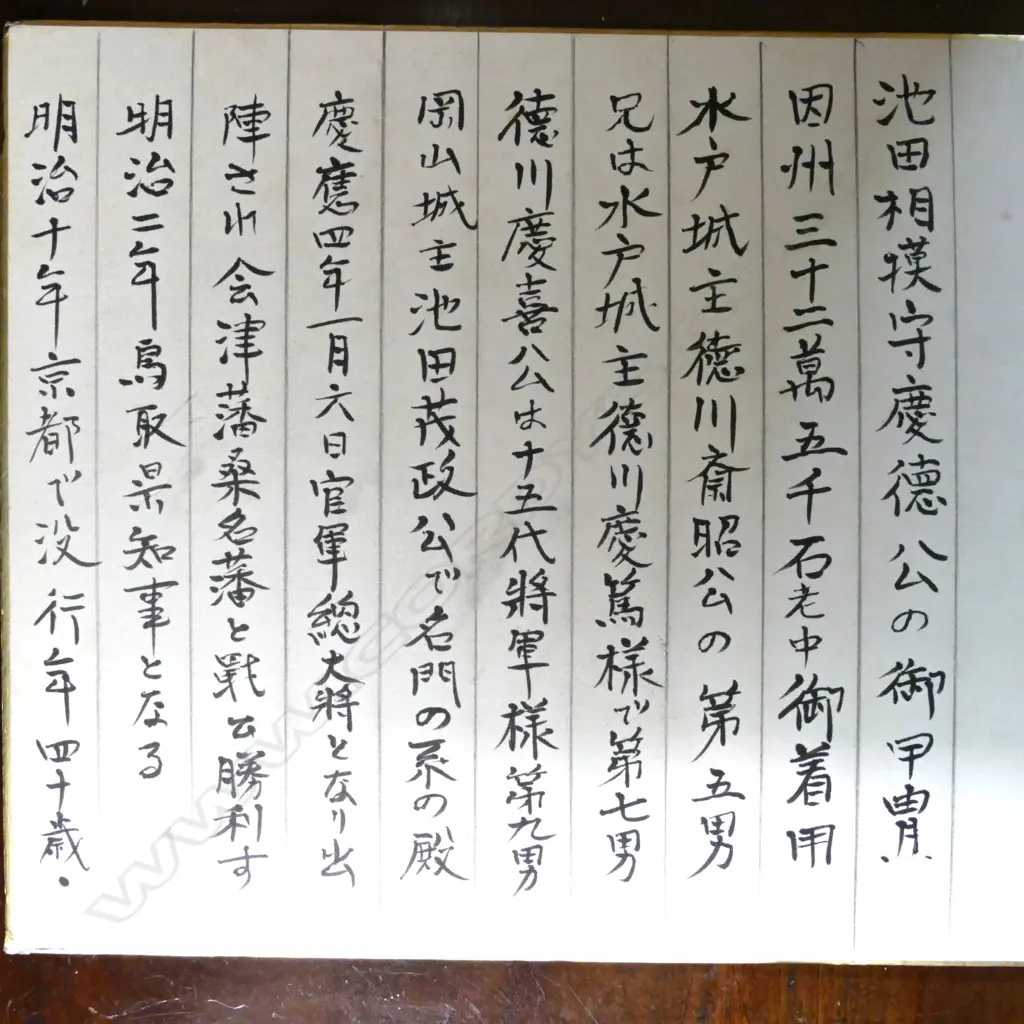 池田相模守慶徳公の御甲冑
因州三十二萬五千石老中御着用
水戸城主徳川斎昭公の第五男
兄は水戸城主徳川慶篤様で第七男
徳川慶喜公は十五代将軍様第九男
岡山城主池田茂政公で名門の系の殿
慶應四年一月六日官軍総大将となり出
陣され会津藩桑名藩と戦公勝利す
明治二年鳥取県知事となる
明治十年京都で没行年四十歳.